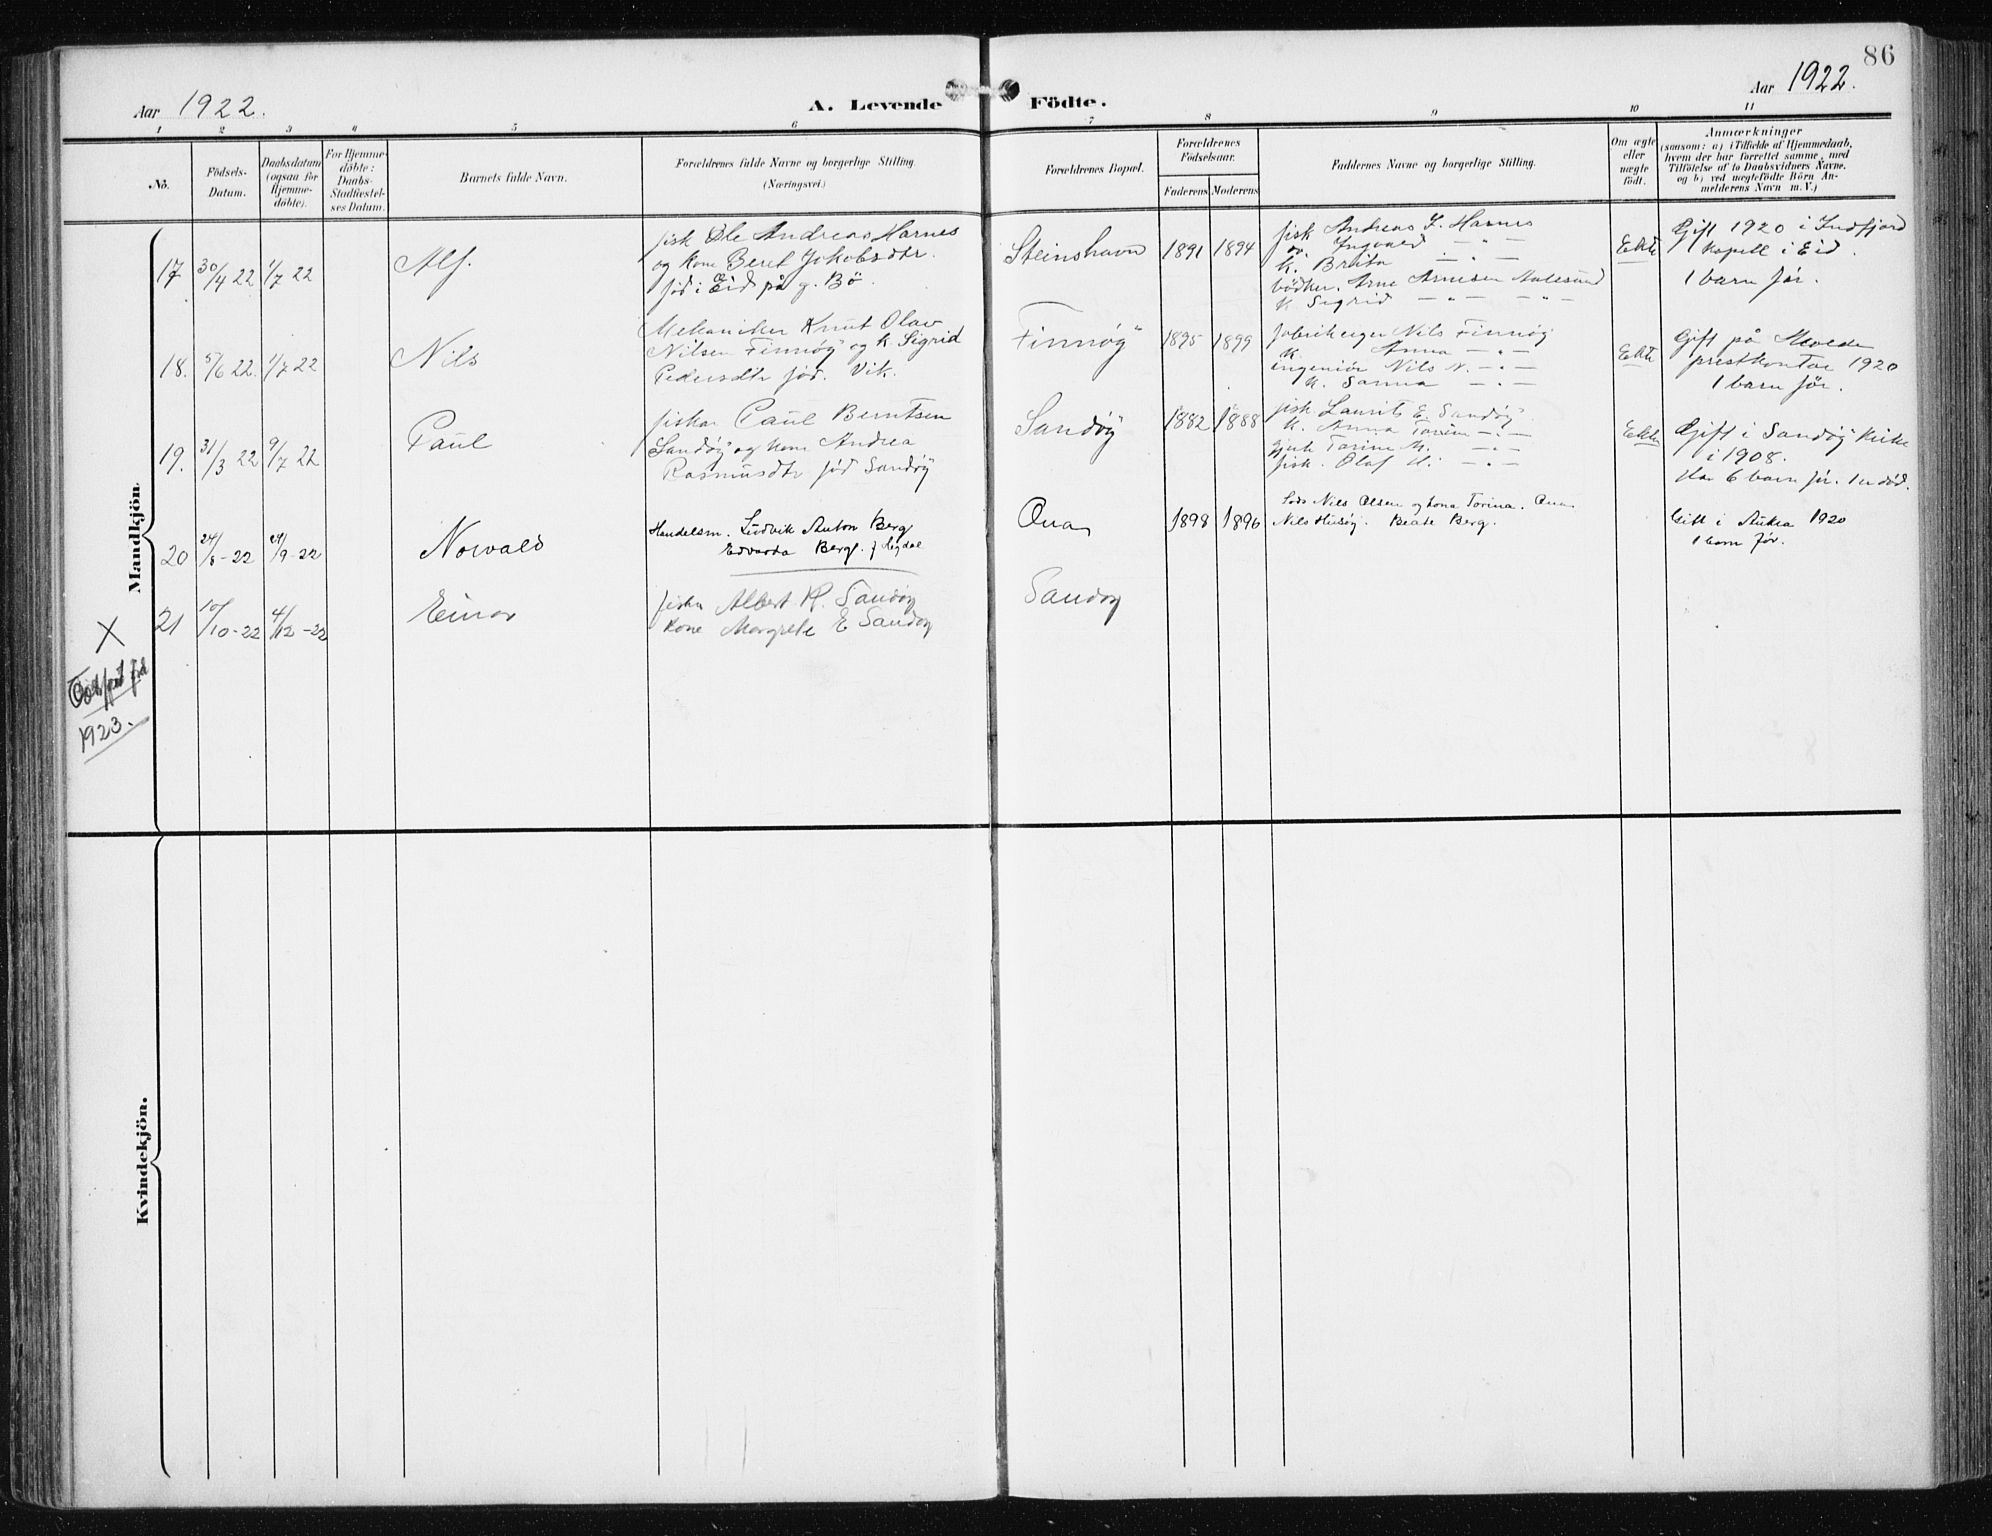 86
Aar 1922.
A. Levende Födte.
Aar 1922.
1 2 3 4 5 6 7 8 9 10 11
No.
Födsels-
Datum.
Daabsdatum
(ogsaa for
Hjemme-
döbte).
For Hjemme-
döbte:
Daabs-
Stadfæstel-
ses Datum.
Barnets fulde Navn.
Forældrenes fulde Navne og borgerlige Stilling.
(Næringsvei.)
Forældrenes Bopæl.
Forældrenes
Födselsaar.
Faderens Moderens
Faddernes Navne og borgerlige Stilling.
Om ægte
eller
uægte
født.
Anmærkninger
(saasom: a) i Tilfælde af Hjemmedaab,
hvem der har forrettet samme, med
Tilföielse af to Daabsvidners Navne.
og b) ved uægtefödte Börn An-
melderens Navn m. V.)
Mandkjön.
17 30/4 22 1/7 22
Alf.
fisk Ole Andreas Harnes
og kone Beret Jokobsdtr.
fød i Eid på g. Bö.
Steinshavn
1891 1894
fisk Andreas J. Harnes
Ingvard — " —
K. Brita — " —
bödker. Arne Arnesen Aalesund
K Sigrid — " — — " —
Ekte
Gift 1920 i Indfjord
kapell i Eid.
1 barn før.
18. 5/6 22. 1/7 22
Nils
Mekaniker Knut Olav
Nilsen Finnöy og k. Sigrid
Pedersdtr fød. Vik.
Finnöy
1895 1899
fabrikeier Nils Finnöy
K. Anna — " —
ingeniör Nils N. — " —
K. Sanna — " —
Ekte
Gift på
prestkontor 1920
1 barn før.
19. 31/3 22 9/7 22
Paul
fisker Paul Berntsen
Sandöy og kone Andrea
Rasmusdtr fød Sandöy
Sandöy
1882 1888
fisk. Laurits E. Sandöy
K. Anna — " —
Torine M. — " —
fisk. Olaf H. — " —
Ekte
Gift i Sandöy kirke
i 1908.
Har 6 barn før. 1 er død.
20 24/8-22 24/9-22
Norvald
Handelsm. Ludvik Anton Berg
Edvarda Berg. f
Ona
1898 1896
Nils Olsen og kona Torina. Ona
Nils Husöy. Beate Berg.
Gift i Aukra 1920
1 barn før.
21 10/10-22 4/12-22
Einar
fisker Albert K. Sandöy
kone Margrete E Sandoy
Sandoy
X
1923.
Kvindekjön.